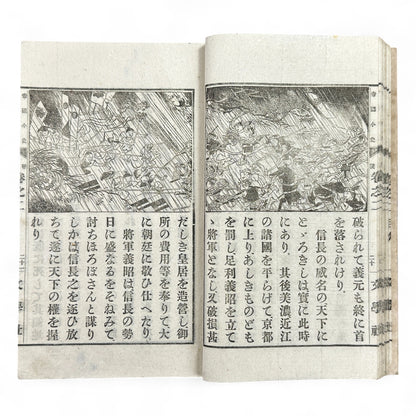 破られて義元も終に首
を落されけり、
信長の威名の天下に
とゞろきしは實に此時
にあり、其後美濃近江
の諸國を平らげて京都
に上りあしきものども
を罰し足利義昭を立て
ゝ將軍となし又破損甚
だしき皇居を造營し御
所の費用等を奉りて大
に朝廷に敬ひ仕へたり、
將軍義昭は信長の勢
日に盛なるをそねみて
討ちほろぼさんと謀り
しかば信長之を逐ひ放
ちて遂に天下の權を握
れり、
卷之二
文學社